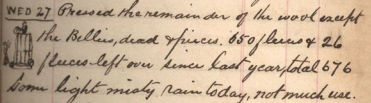 WED 27 Pressed the remainder of the wool except
the Bellies, dead & pieces. 650 fleeces & 26
fleeces left over since last year, total 676
Some light misty rain today, not much use.